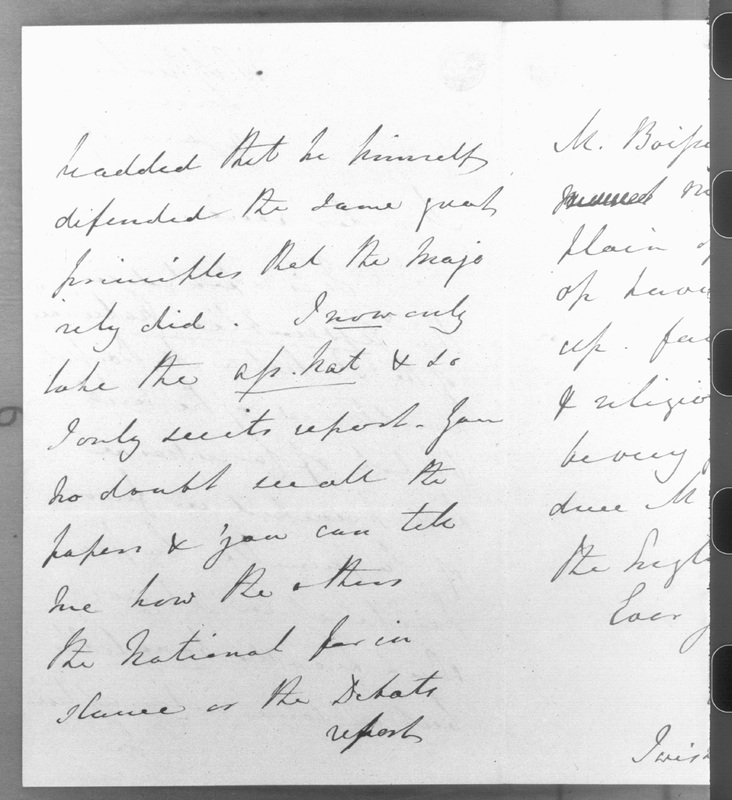 he added that he himself
defended the same great
principles that the Majo
rity did. I now only
take the ass. Nat & so
I only see its report - You
no doubt see all the
papers & you can tell
me how the others
the National for in
stance or the Debats
report
M.
plain
of
up.
& religio
every
duce M
the Engl
Ever
I wish